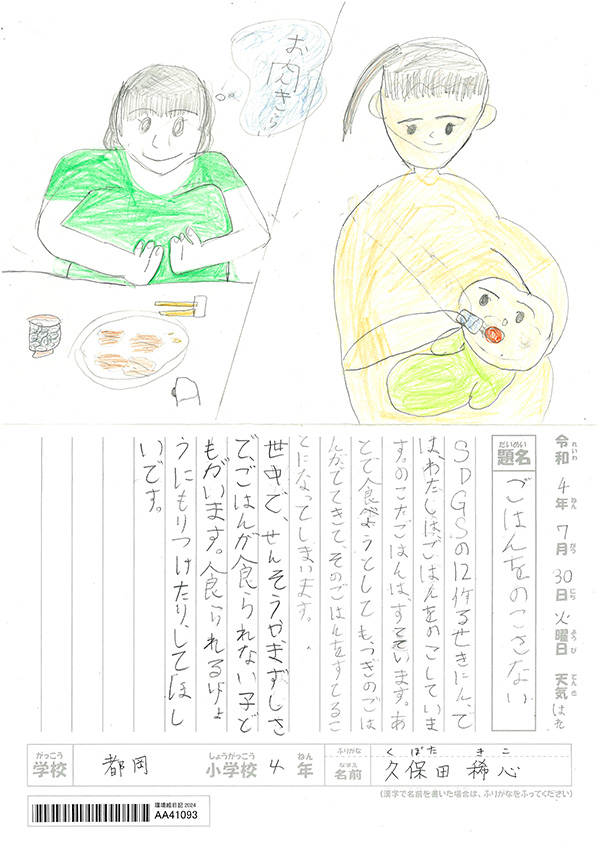 お肉きらい
令和4年7月30日火曜日 天気はれ
れいわ ねん がつ にち ようび てんき
だいめい
題名
ごはんをのこさない
SDGSの12作るせきにん、で
は、わたしはごはんをのこしていま
す。のこたごはんは、すてています。あ
とで食べようとしても、つぎのごは
んがでてきて、そのごはんをすてるこ
とになってしまいます。
世中で、せんそうやまずしさ
で、ごはんが食られない子ど
もがいます。食られるりょ
うにもりつけたり、してほし
いです。
がっこう しょうがっこう ねん ふりがな くぼた きこ
学校 都岡 小学校 4年 なまえ 名前 久保田稀心
(漢字で名前を書いた場合は、ふりがなをふってください)
環境絵日記2024
AA41093